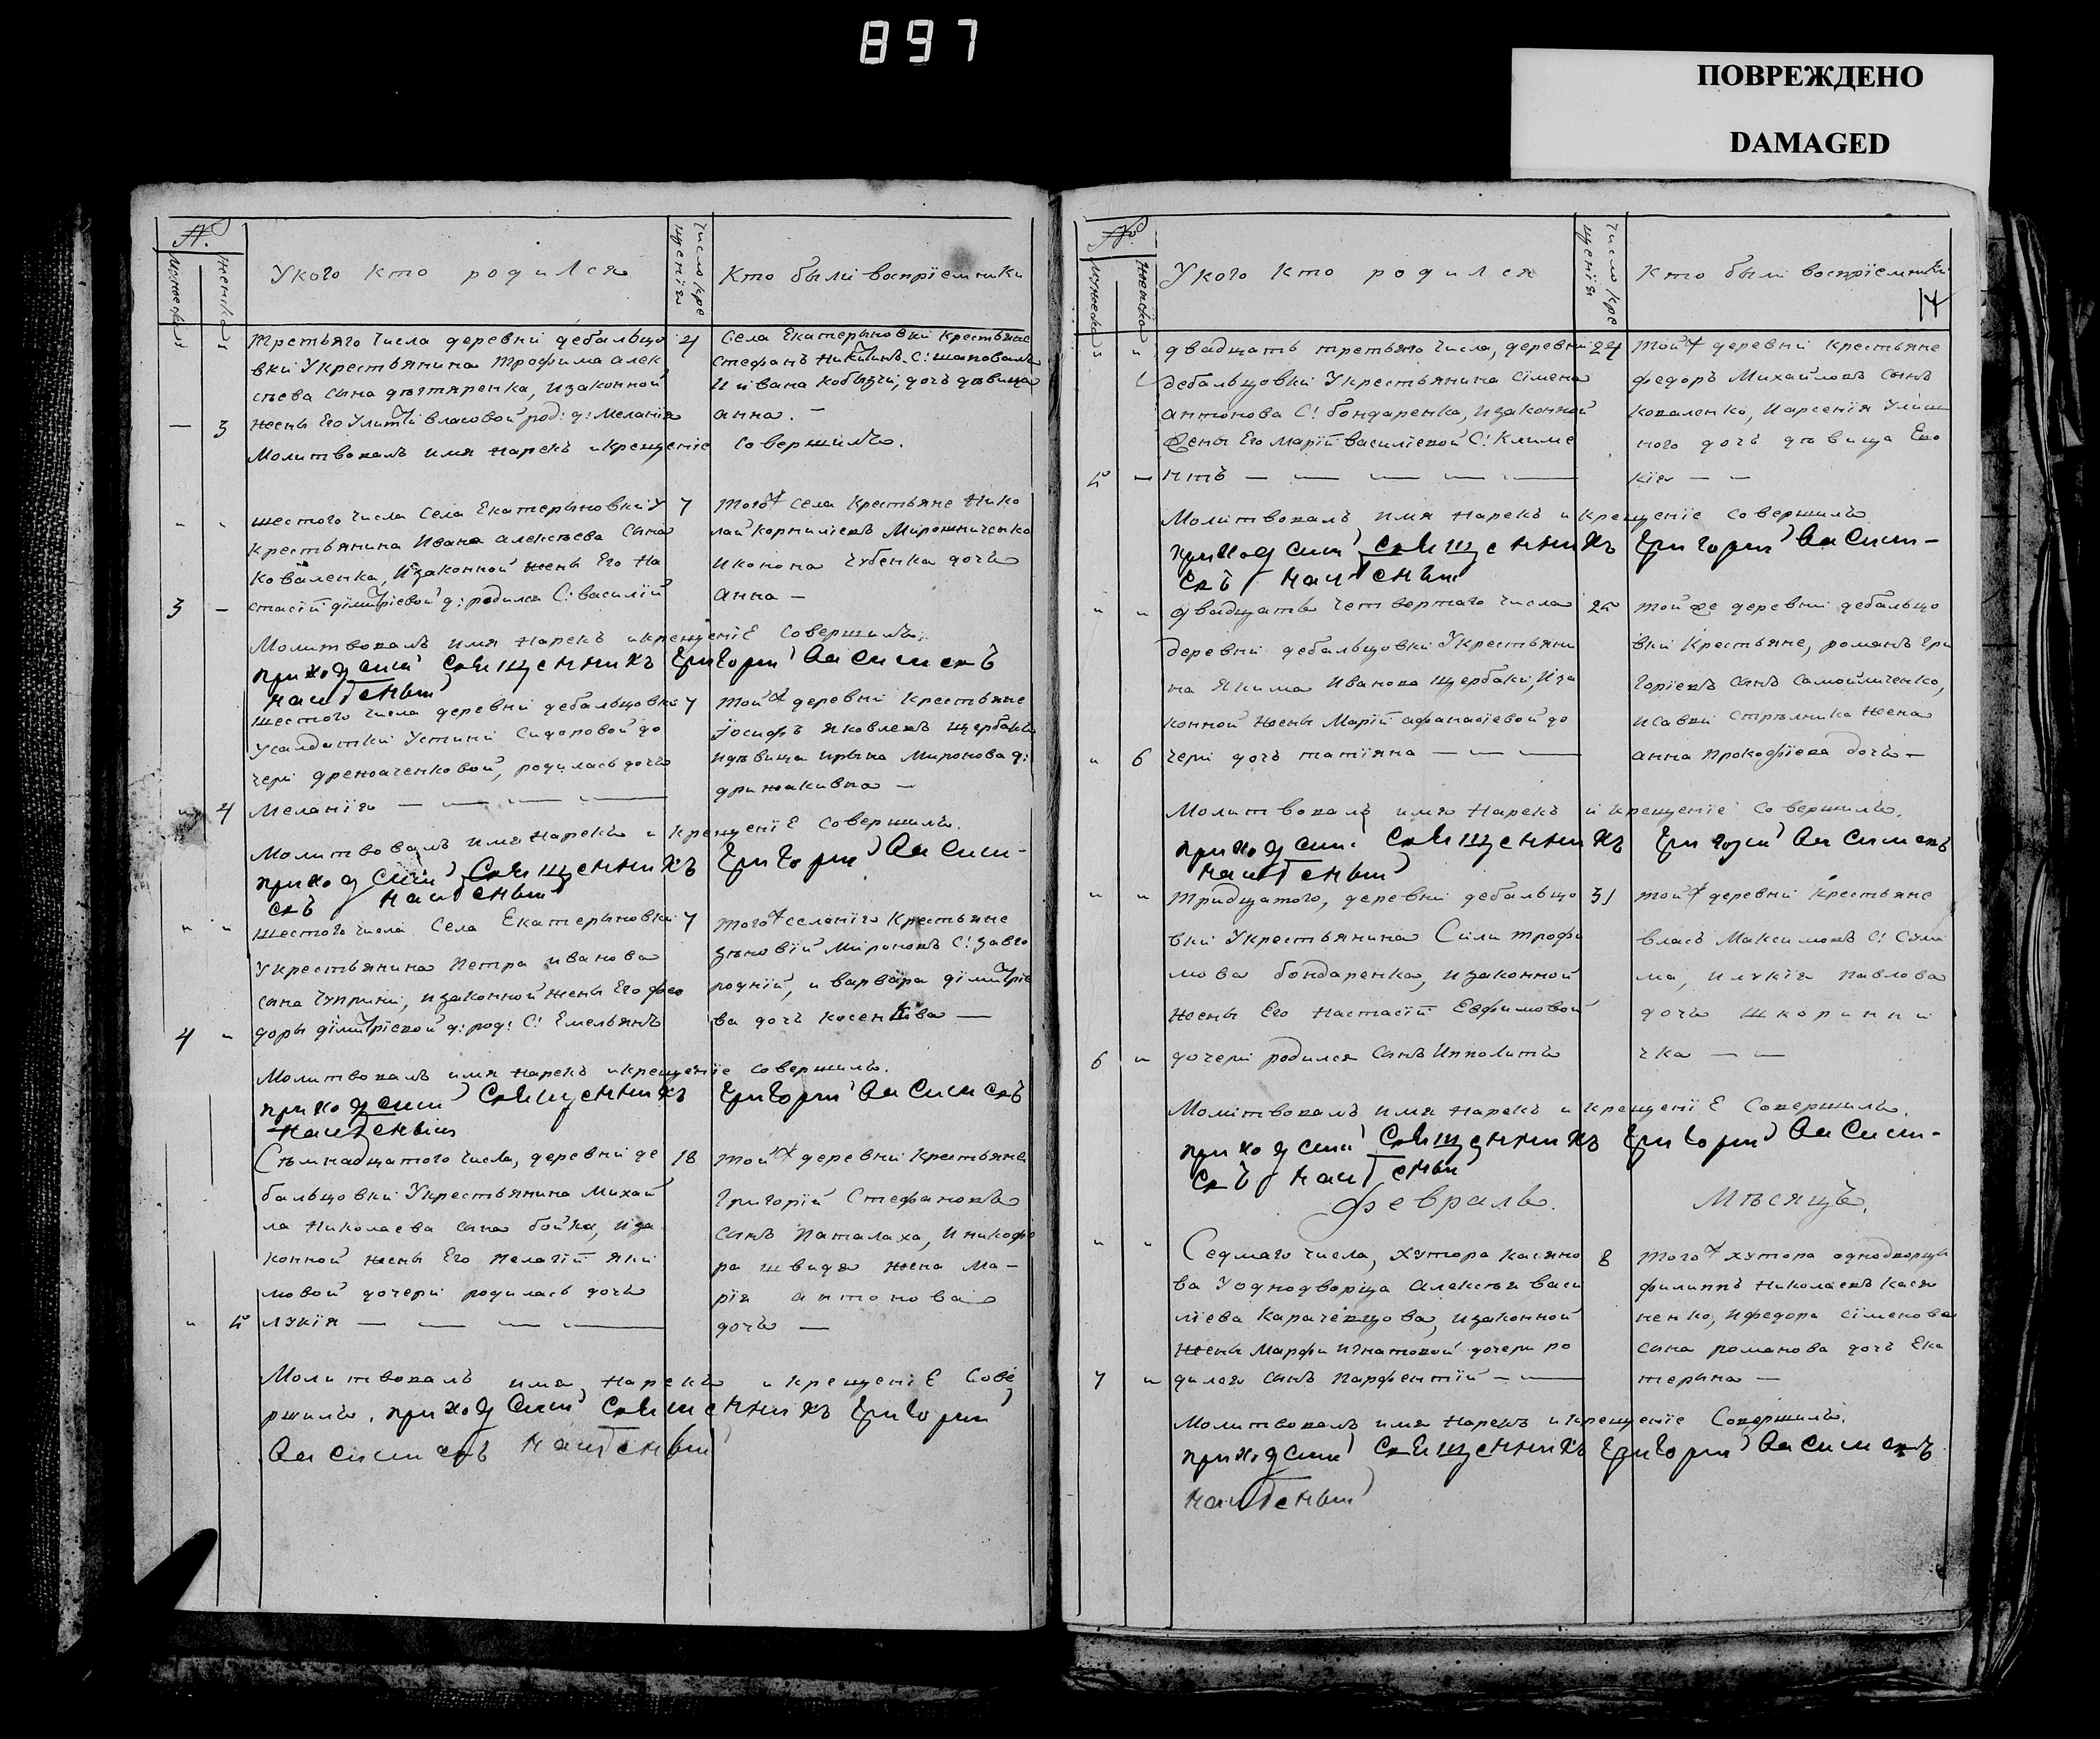 897
ПОВРЕЖДЕНО
DAMAGED
№
Мужеска
Женска
У кого кто родился
Число кре
щенія
Кто были воспріемники
Третьяго числа деревни дебальцо
вки У крестьянина Трофима алек
сѣева сына дѣгтяренка, и законной
жены Его Улитти власовой род: д: Меланія
Молитвовалъ имя нарекъ и крещеніе совершилъ.
— 3
4
Села Екатерыновки крестьяне
стефанъ Никитинъ С: шаповалъ
И ивана кобызчи, дочь дѣвица
анна. —
шестого числа села Екатерыновки У
крестьянина Ивана алексѣева сына
коваленка, И законной жены Его На
стасіи димитріевой д: родился С: василій
3 —
7
того ж села крестьяне Нико
лай корниліевъ Мирошниченко
иконона губенка дочь
анна —
Молитвовалъ имя нарекъ и крещеніЕ совершилъ.
приходскій священникъ Григорій
шестого числа деревни дебальцовки
У салдатки Устини Сидоровой до
чери дрекаченковой, родилась дочь
" 4 Меланія — — — —
7
той ж деревни крестьяне
Іосифъ яковлевъ щербакъ
и дѣвица ирына Миронова д:
дрижакивна —
Молитвовалъ имя нарекъ и крещеніЕ совершилъ.
приходскій священникъ Григорій
шестого числа села Екатерыновки
У крестьянина Петра иванова
сына Чуприни, и законной жены Его фео
доры димитріевой д: род: С: Емельянъ
4 "
7
того ж селенія крестьяне
зѣновій Мироновъ С: заво
родній, и варвара димитріе
ва дочь косенкова —
Молитвовалъ имя нарекъ и крещеніе совершилъ.
приходскій священникъ Григорій
Сѣмнадцатого числа, деревни де
бальцовки У крестьянина Михай
ла Николаева сына бойка, и за
конной жены Его Пелагіи яки
мовой дочери родилась дочь
" 5 лукія — — — —
18
той ж деревни крестьяне
Григорій Стефановъ
сынъ Паталаха, И никифо
ра швидя жена Ма—
рія антонова
дочь —
Молитвовалъ имя нарекъ и крещеніЕ Сове
ршилъ. приходскій священникъ Григорій
№
Мужеска
Женска
У кого кто родился
Число кре
щенія
Кто были воспріемники
14
двадцать третьяго числа, деревни
дебальцовки У крестьянина Сімена
антонова С: бондаренка, И законной
жены Его Маріи василіевой С: Климе
5 — нтъ — — — — —
24
той ж деревни крестьяне
федоръ Михайловъ сынъ
коваленко, И арсенія Улиш
ного дочь дѣвица Ево
кія — —
Молитвовалъ имя нарекъ и крещеніе совершилъ
приходскій священникъ Григорій
двадцать четвертаго числа
деревни дебальцовки У крестьяни
на Якима Иванова щербаки, И за
конной жены Маріи афанасіевой до
" 6 чери дочь татіяна — — —
25
той же деревни дебальцо
вки крестьяне, романъ Гри
горіевъ сынъ Самойличенко,
и савки стрѣлника жена
анна Прокофіева дочь —
Молитвовалъ имя нарекъ и крещеніе совершилъ.
приходскій священникъ Григорій
Тридцатого, деревни дебальцо
вки У крестьянина Сили трофи
мова бондаренка, и законной
жены Его Настасіи Евфимовой
6 " дочери родился сынъ Ипполитъ
31
той ж деревни крестьяне
власъ Максимовъ С: Сули
ма, и лукія Павлова
дочь шкоринки
чка — —
Молитвовалъ имя нарекъ и крещеніЕ Совершилъ.
приходскій священникъ Григорій
февраль. Мѣсяцъ.
Седмаго числа, хутора касяно
ва У однодворца Алексѣя васи
ліева Карачевцова, и законной
жены Марфи Игнатовой дочери ро
7 " дился сынъ Парфентій — —
8
того ж хутора однодворцы
филиппъ Николаевъ кася
ненко, И федора Сіменова
сына романова дочь Ека
терына —
Молитвовалъ имя нарекъ и крещеніе Совершилъ.
приходскій священникъ Григорій